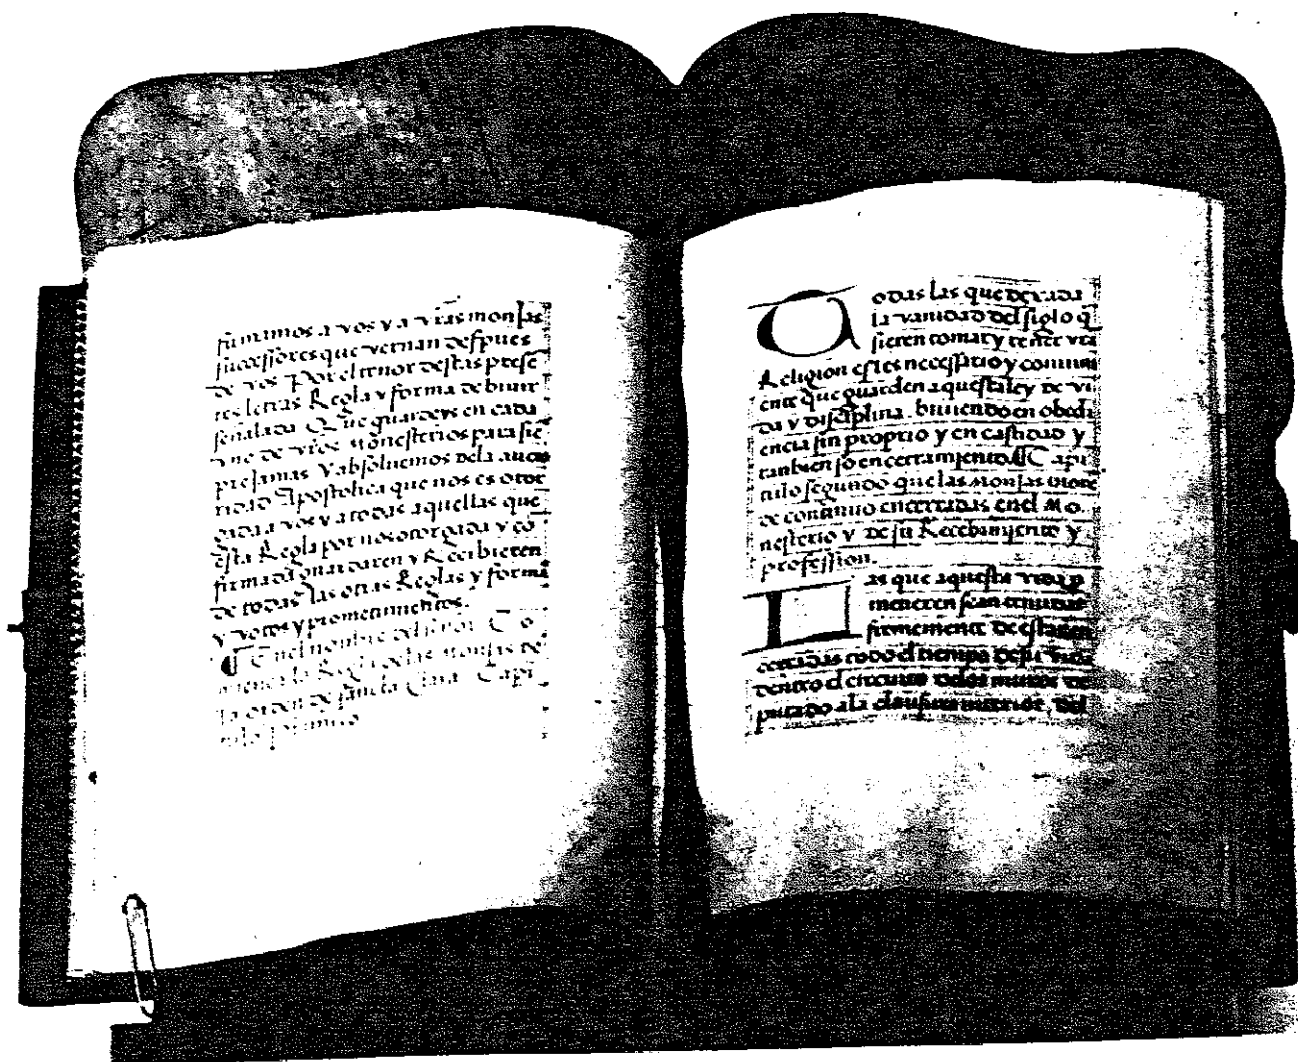 firmamos a vos y a vr̃as monjas
successores que vernan despues
de vos Por el tenor destas presẽ
tes letras Regla y forma de biuir
señalada Que guardeys en cada
vno de vr̃os monesterios para siẽ
pre jamas Y absoluemos dela aucto
ridad Apostolica que nos es otor
gada a vos y a todas aquellas que
esta Regla por nos otorgada y cõ
firmada guardaren y Recibieren
de todas las otras Reglas y forma
y votos y prometimientos.
¶ En el nombre del señor Co
miença la Regla delas monjas de
la orden de sancta Clara Capi
tulo primero
Todas las que dexada
la vanidad del siglo q̃
sieren tomar y tener vr̃a
Religion es les necessario y conuini
ente que guarden aquesta ley de vi
da y disciplina. biuiendo en obedi
encia sin proprio y en castidad y
tambien so encerramiento. ¶ Capi
tulo segundo que las monjas more
de continuo encerradas en el Mo
nesterio y de su Recebimiento y
profession.
Las que aquesta vida p
metieren sean tenudas
firmemente de estar en
cerradas todo el tiempo de su vida
dentro el circuito delos muros de
putado ala clausura interior. Del